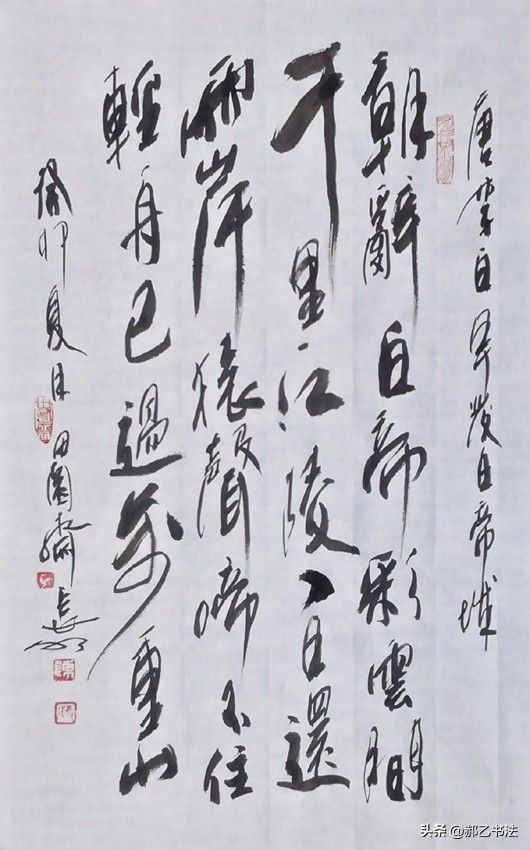 唐李白早發白帝城
朝辭白帝彩雲間
千里江陵一日還
兩岸猿聲啼不住
輕舟已過萬重山
卯夏月 田園齋
头条 @郝乙书法